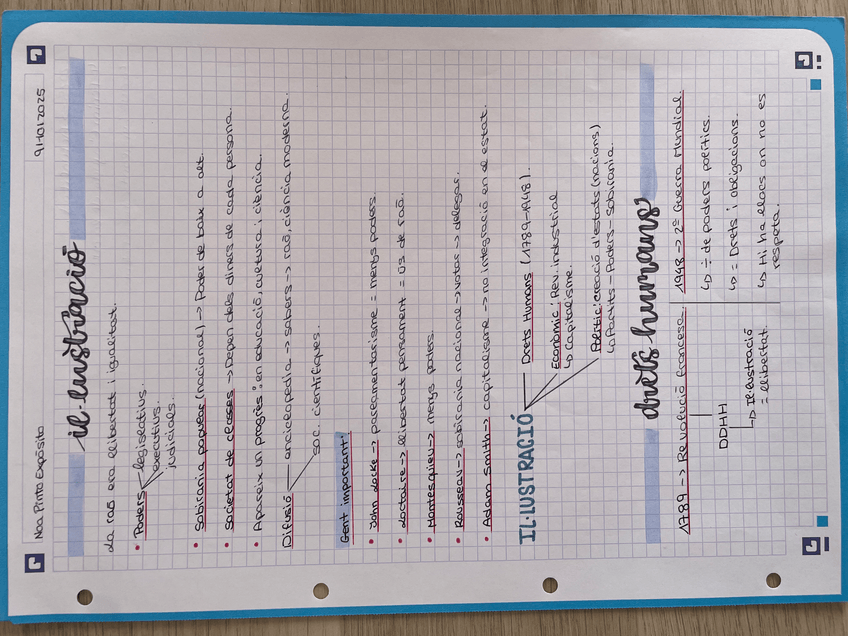 Noa Pinto Expósito
9/10/2025
il·lustració
La raó era llibertat i igualtat.
• Poders legislatius.
executius.
judicials.
• Sobirania popular (nacional) -> Poder de baix a alt.
• Societat de classes -> Depen dels diners de cada persona.
• Apareix un progrés: en educació, cultura i ciència.
Difusió enciclopedia -> sabers -> raó, ciència moderna.
soc. científiques.
Gent important:
• John Locke -> parlamentarisme = menys poders.
• Voltaire -> llibertat pensament = ús de raó.
• Montesquieu -> menys poders.
• Rousseau -> sobirania nacional -> votar -> delegar.
• Adam Smith -> capitalisme -> no integració en el estat.
IL·LUSTRACIÓ
Drets Humans (1789-1948).
Econòmic: Rev. industrial
↳ Capitalisme.
Polític: creació d'estats (nacions)
↳ Partits - Poders - Sobirania.
drets humans
1789 -> Revolució francesa.
DDHH
↳ Il·lustració
= llibertat.
1948 -> 2ª Guerra Mundial.
↳ ÷ de poders polítics.
↳ = Drets i obligacions.
↳ Hi ha llocs on no es
respeta.